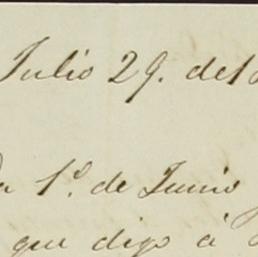 Julio 29. de 1
1.º de Junio
que digo á